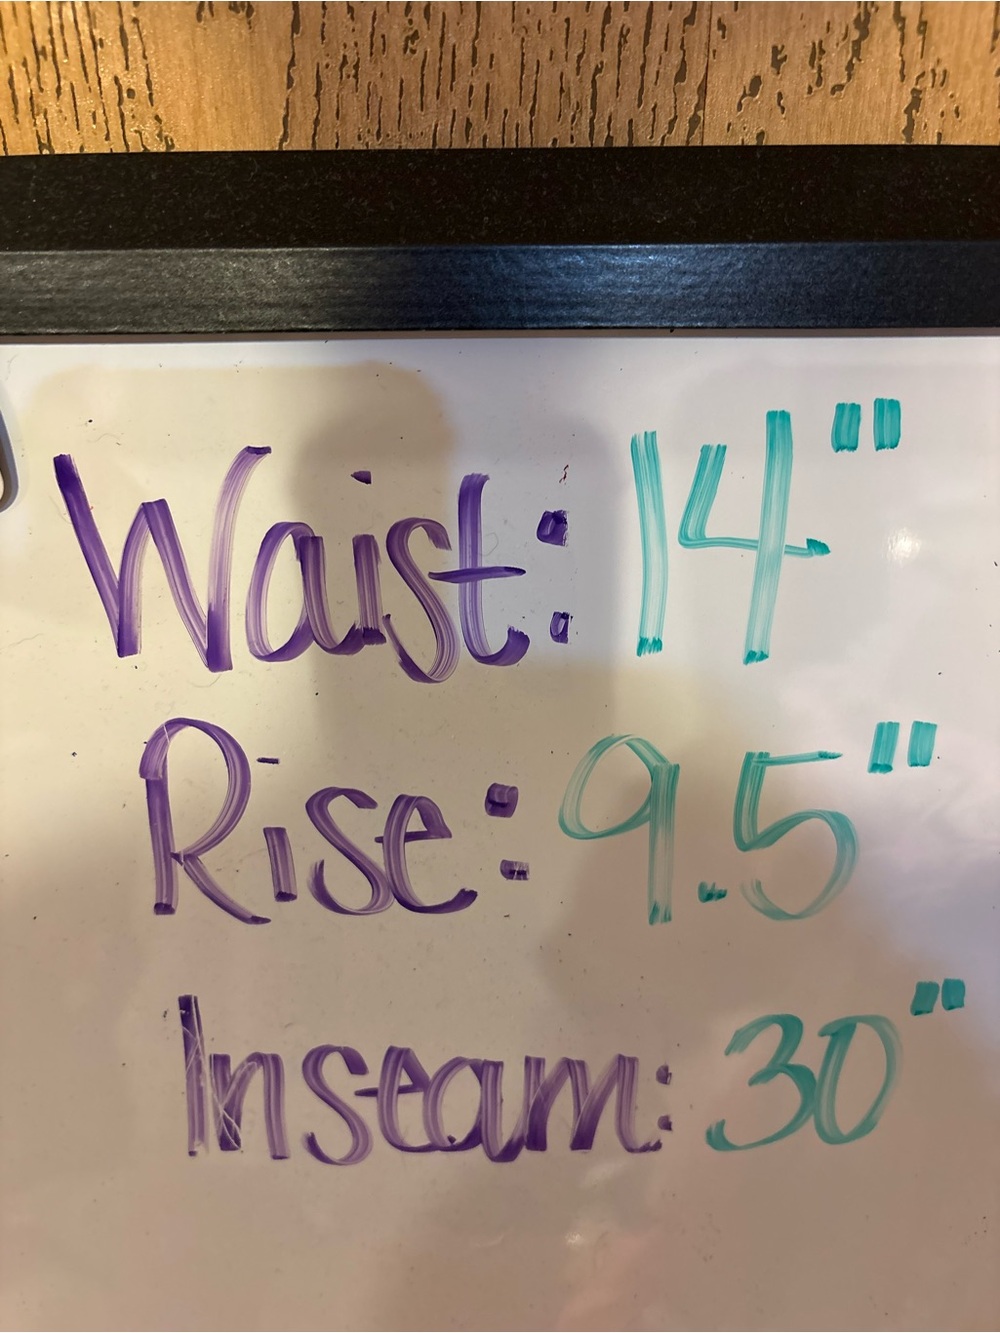 Waist: 14"
Rise: 9.5"
Inseam: 30"